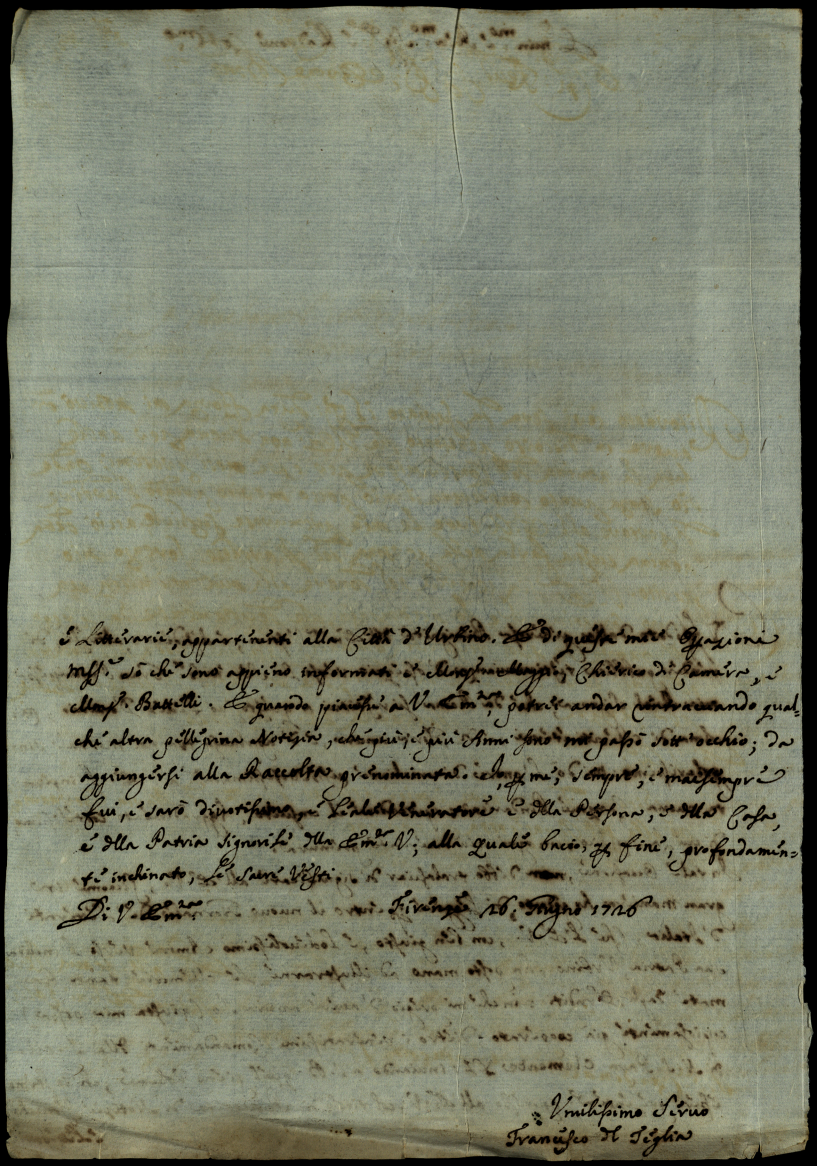 e Litterarie, appartenenti alla Città d'Urbino. E di queste mie
Mss.ⁱ sò che sono appieno informati e Chierico di Camera, e
Mons.ʳ Battelli. E quando piacesse a V. Em.ᶻᵃ, potrei andar rintracciando qual=
che altra pellegrina Notizia, che più, e più Anni sono mi passò sott'occhio; da
aggiungersi alla Raccolta prenominata. Io, p me, sempre, e maisempre
fui, e sarò divotissimo, e Leale Veneratore e della Persona, e della Casa,
e della Patria Signorile della Em.ᶻᵃ V.; alla quale bacio, p fine, profondamen=
te inchinato, le Sacre Vesti.
Di V. Em.ᶻᵃ Firenze 26, Giugno 1726
Vmilissimo Servo
Francesco del Teglia